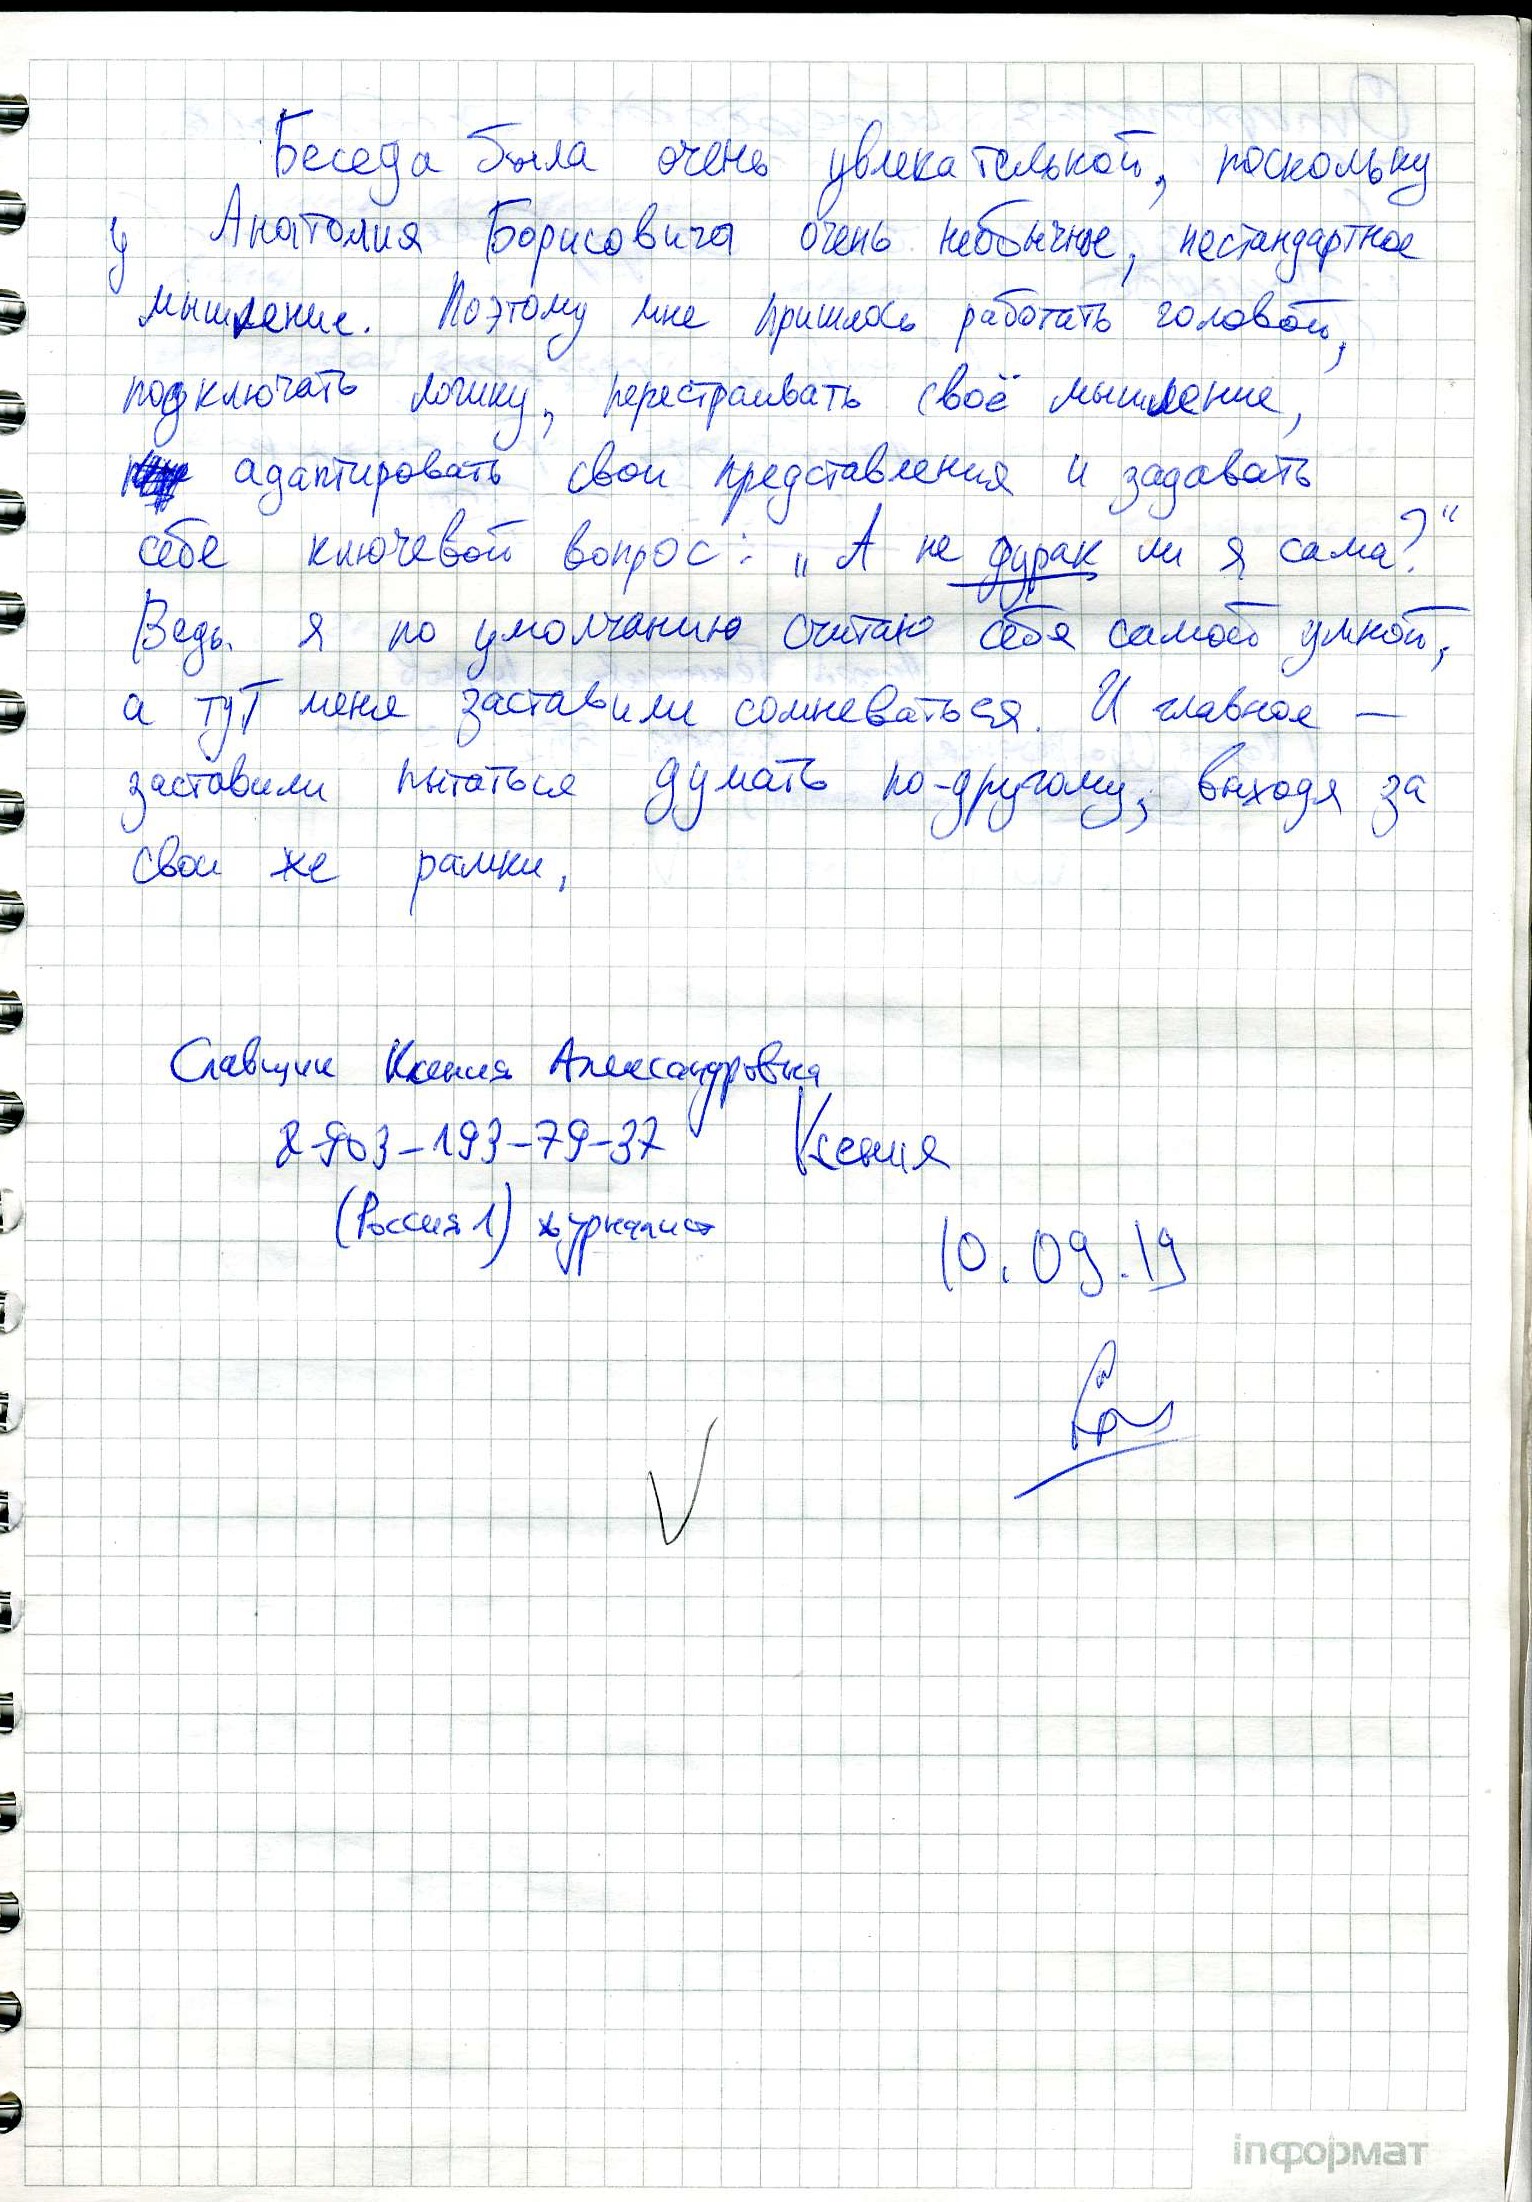 Беседа была очень увлекательной, поскольку
у Анатолия Борисовича очень необычное, нестандартное
мышление. Поэтому мне пришлось работать головой,
подключать логику, перестраивать своё мышление,
адаптировать свои представления и задавать
себе ключевой вопрос: „А не дурак ли я сама?“
Ведь я по умолчанию считаю себя самой умной,
а тут меня заставили сомневаться. И главное —
заставили пытаться думать по-другому, выходя за
свои же рамки.
Славщик Ксения Александровна
8-903-193-79-37 Ксения
(Россия 1) журналист
10.09.19
inформат